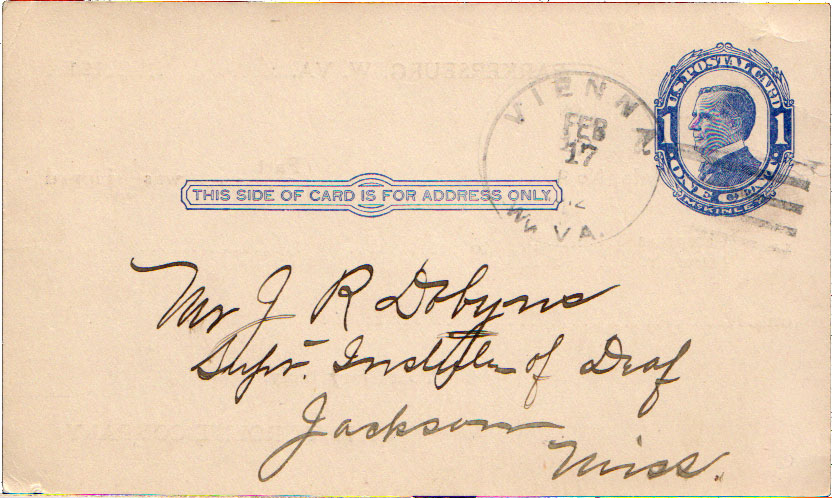 U.S. POSTAL CARD
1 1
ONE CENT
McKINLEY
VIENNA
FEB
17
12
W. VA.
THIS SIDE OF CARD IS FOR ADDRESS ONLY
Mr J R Dobyns
Supt. Institute of Deaf
Jackson
Miss.